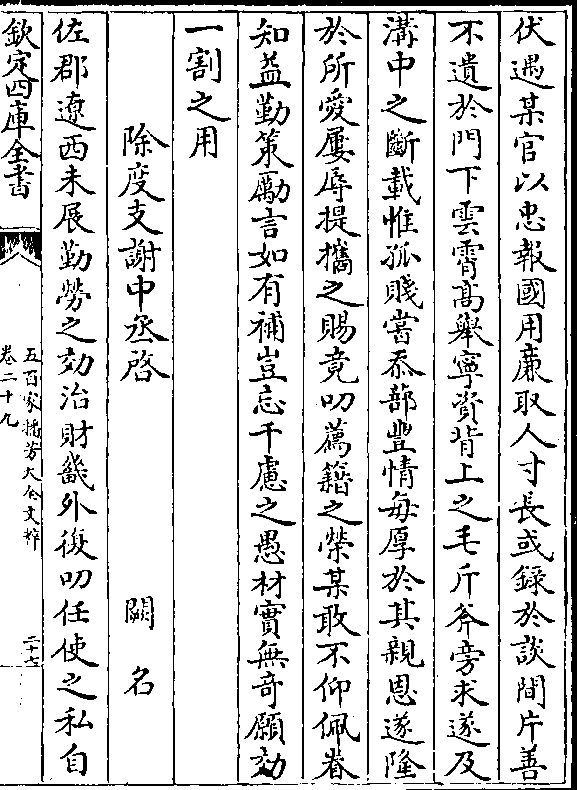 伏遇某官以忠報國用廉取人寸長或録於談間片善
不遺於門下雲霄髙舉寧資背上之毛斤斧旁求遂及
溝中之斷載惟孤賤嘗忝蔀豐情每厚於其親恩遂隆
於所愛屢辱提攜之賜竟叨薦籍之榮某敢不仰佩眷
知益勤策勵言如有補豈忘千慮之愚材實無竒願効
一割之用
除度支謝中丞啓 闕名
佐郡遼西未展勤勞之効治財畿外復叨任使之私自
欽定四庫全書
五百家播芳大全文粹
卷二十九
二十六